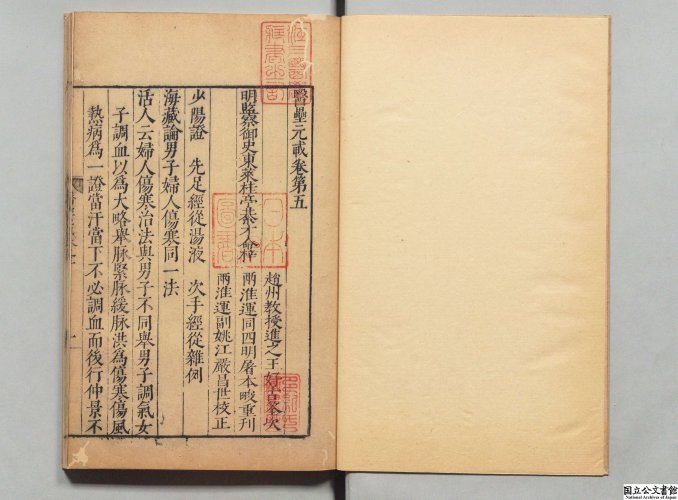 醫壘元戎卷第五
趙州教授進之王好古彔次
明監察御史東萊桂亭綦才命梓
兩淮運同四明屠本畯重刊
兩淮運副姚江嚴昌世校正
少陽證　先足經從湯液　次手經從雜例
海藏論男子婦人傷寒同一法
活人云婦人傷寒治法與男子不同舉男子調氣女
子調血以爲大略舉脉緊脉緩脉洪爲傷寒傷風
熱病爲一證當汗當下不必調血而後行仲景不
日本
國立公文書館
National Archives of Japan